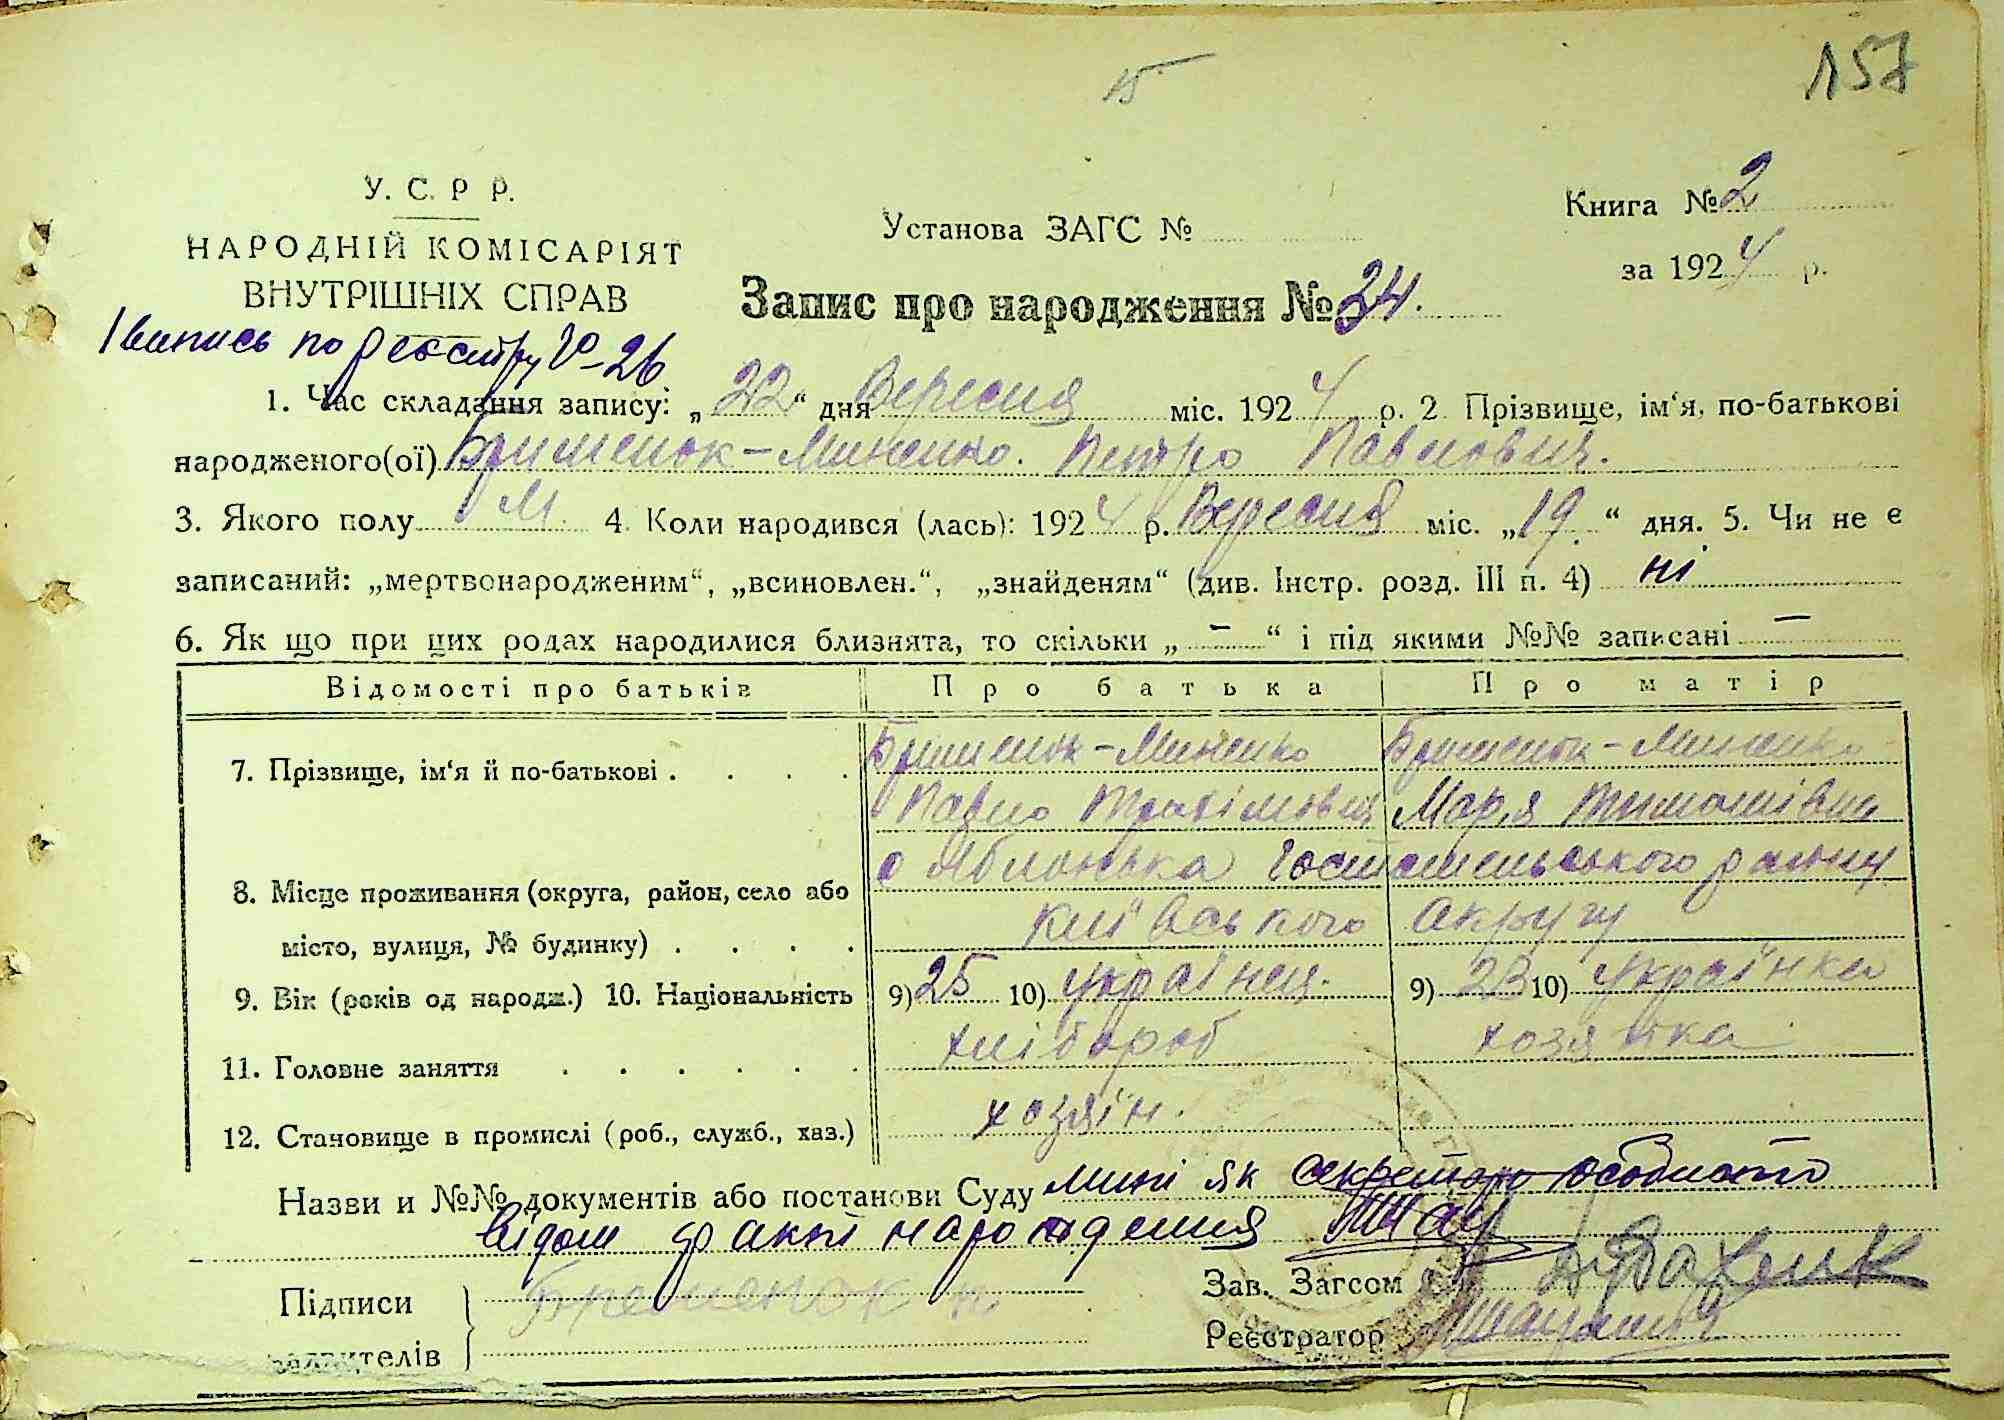 157
15
У. С. Р Р.
НАРОДНІЙ КОМІСАРІЯТ
ВНУТРІШНІХ СПРАВ
Установа ЗАГС №
Книга № 2
за 1924 р.
Запис про народження № 34.
1 випись по реєстру 20-26
1. Час складання запису: „22“ дня Вересня міс. 1924 р. 2 Прізвище, ім‘я, по-батькові
народженого(ої) Брименок-Миненко. Петро Павлович.
3. Якого полу М. 4. Коли народився (лась): 1924 р. Вересня міс. „19.“ дня. 5. Чи не є
записаний: „мертвонародженим“, „всиновлен.“, „знайденям“ (див. Інстр. розд. III п. 4) ні
6. Як що при цих родах народилися близнята, то скільки „ – “ і під якими №№ записані –
Відомості про батьків Про батька Про матір
7. Прізвище, ім‘я й по-батькові . . . . Брименок-Миненко Брименок-Миненко
Павло Трохімович Мар,я Тимошівна
с Яблонька Гостомельського району
8. Місце проживання (округа, район, село або
київського округу
місто, вулиця, № будинку) . . . .
9. Вік (років од народж.) 10. Національність 9) 25 10) українец. 9) 23 10) українка
11. Головне заняття . . . . . . хлібороб хозяйка
12. Становище в промислі (роб., служб., хаз.) хозяїн.
Назви и №№ документів або постанови Суду мині як секретарю особисто
відом факт народження
Підписи Бременок п.
Зав. Загсом
заявителів
Реєстратор